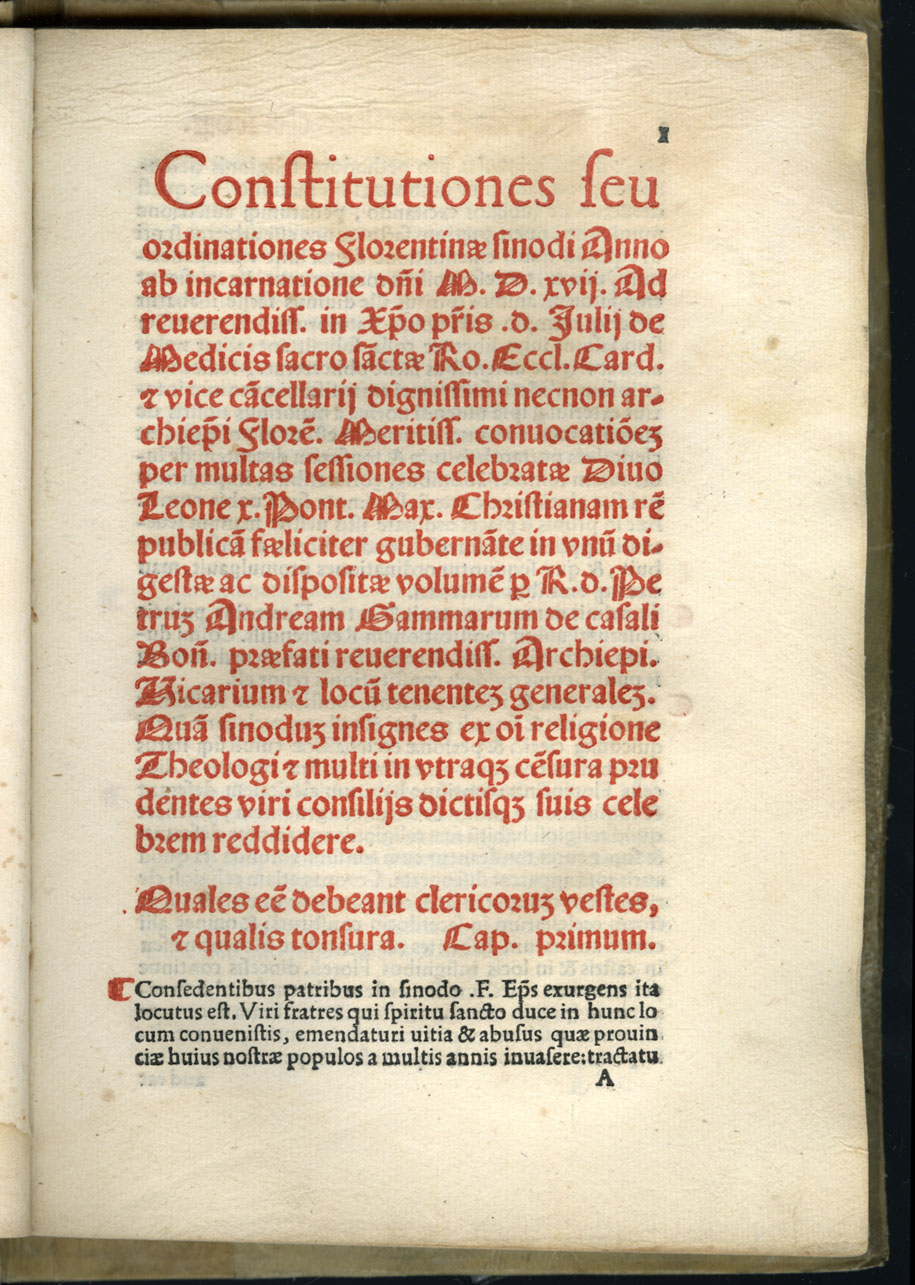 1
Conſtitutiones ſeu
ordinationes Florentinæ ſinodi Anno
ab incarnatione dñi M. D. xvij. Ad
reuerendiſſ. in Xp̄o pr̄is .d. Julij de
Medicis ſacro ſāctæ Ro. Eccl. Card.
⁊ vice cācellarij digniſſimi necnon ar⸗
chiep̄i Florē. Meritiſſ. conuocatiōeꝫ
per multas ſeſſiones celebratæ Diuo
Leone x. Pont. Max. Chriſtianam rē
publicā fæliciter gubernāte in vnū di⸗
geſtæ ac diſpoſitæ volumē ꝑ R. d. Pe
truꝫ Andream Gammarum de caſali
Boñ. præfati reuerendiſſ. Archiepi.
Vicarium ⁊ locū tenenteꝫ generaleꝫ.
Quā ſinoduꝫ inſignes ex oī religione
Theologi ⁊ multi in vtraqꝫ cēſura pru
dentes viri conſilijs dictiſqꝫ ſuis cele
brem reddidere.
Quales eē debeant clericoruꝫ veſtes,
⁊ qualis tonſura. Cap. primum.
⸿ Conſedentibus patribus in ſinodo .F. Ep̄s exurgens ita
locutus eſt. Viri fratres qui ſpiritu ſancto duce in hunc lo
cum conueniſtis, emendaturi uitia & abuſus quæ prouin
ciæ huius noſtræ populos a multis annis inuaſere: tractatu
A